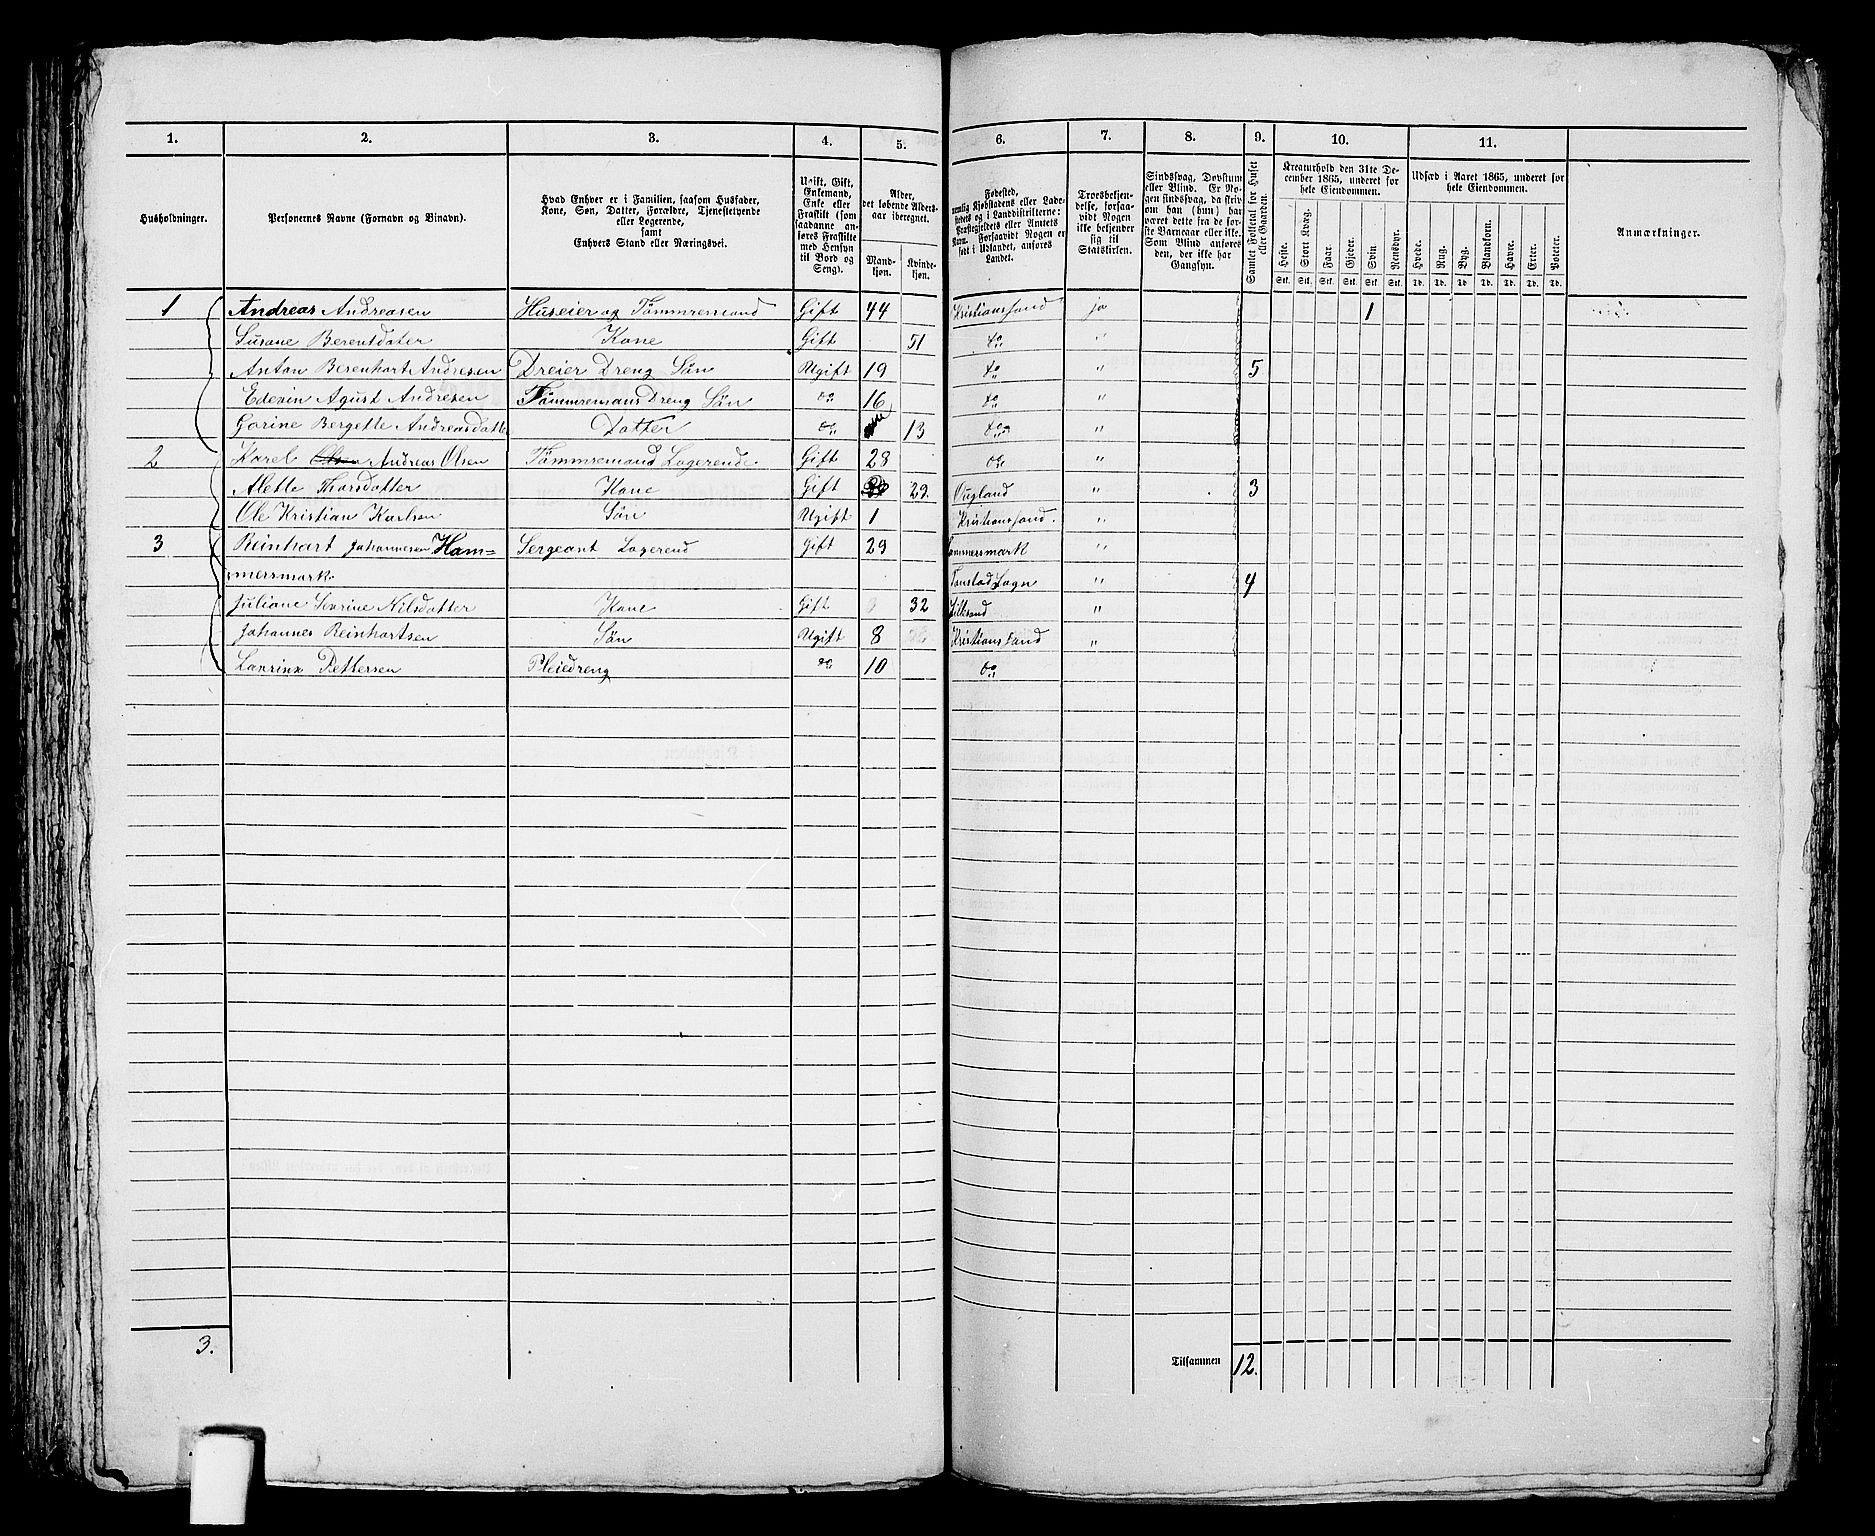 1. 2. 3. 4. 5. 6. 7. 8. 9. 10. 11.
Husholdninger.
Personernes Navne (Fornavn og Binavn).
Hvad Enhver er i Familien, saasom Husfader,
Kone, Søn, Datter, Forældre, Tjenestetyende
eller Logerende,
samt
Enhvers Stand eller Næringsvei.
Ugift, Gift,
Enkemand,
Enke eller
Fraskilt (som
saadanne an-
føres Fraskilte
med Hensyn
til Bord og
Seng).
Alder,
det løbende Alders-
aar iberegnet.
Mand-
kjøn.
Kvinde-
kjøn.
Fødested,
nemlig Kjøbstadens eller Lade-
stedets og i Landdistrikterne:
Præstegjeldets eller Annexets
Navn. Forsaavidt Nogen er
født i Udlandet, anføres
Landet.
Troesbekjen-
delse, forsaa-
vidt Nogen
ikke bekjender
sig til
Statskirken.
Sindssvag, Døvstum
eller Blind. Er No-
gen sindssvag, da skriv
om han (hun) har
været dette fra de før-
ste Barneaar eller ikke.
Som Blind anføres
den, der ikke har
Gangsyn.
Samlet Folketal for Huset
eller Gaarden.
Kreaturhold den 31te De-
cember 1865, underet for
hele Eiendommen.
Heste. Stort Kvæg. Faar. Gjeder. Svin. Rensdyr.
Stk. Stk. Stk. Stk. Stk. Stk.
Udsæd i Aaret 1865, underet for
hele Eiendommen.
Hvede. Rug. Byg. Blandkorn. Havre. Erter. Poteter.
Td. Td. Td. Td. Td. Td. Td.
Anmærkninger.
1 Andreas Andreasen Huseier og Tømmremand Gift 44 Kristianssand ja 1
Susane Berentdater Kone Gift 51 do "
Anton Berenhart Andresen Dreier Dreng Søn Ugift 19 do " 5
Edevin Agust Andresen Tømmremans Dreng Søn do 16 do "
Gorine Bergette Andreasdatte Datter do 13 do "
2 Karel Olsen Andreas Olsen Tømmremand Logerende Gift 28 do "
Alette Thorsdatter Kone Gift 29. Ougland " 3
Ole Kristian Karlsen Søn Ugift 1 Kristianssand. "
3 Reinhart Johannesen Ham= Sergeant Logerend Gift 29 ammersmark "
mersmark. Tonstad Sogn " 4
Juliane Sevrine Nilsdatter Kone Gift 32 Lillesand "
Johannes Reinhartsen Søn Ugift 8 Kristianssand "
Lavrinx Pettersen Pleiedreng do 10 do
3.
Tilsammen 12.